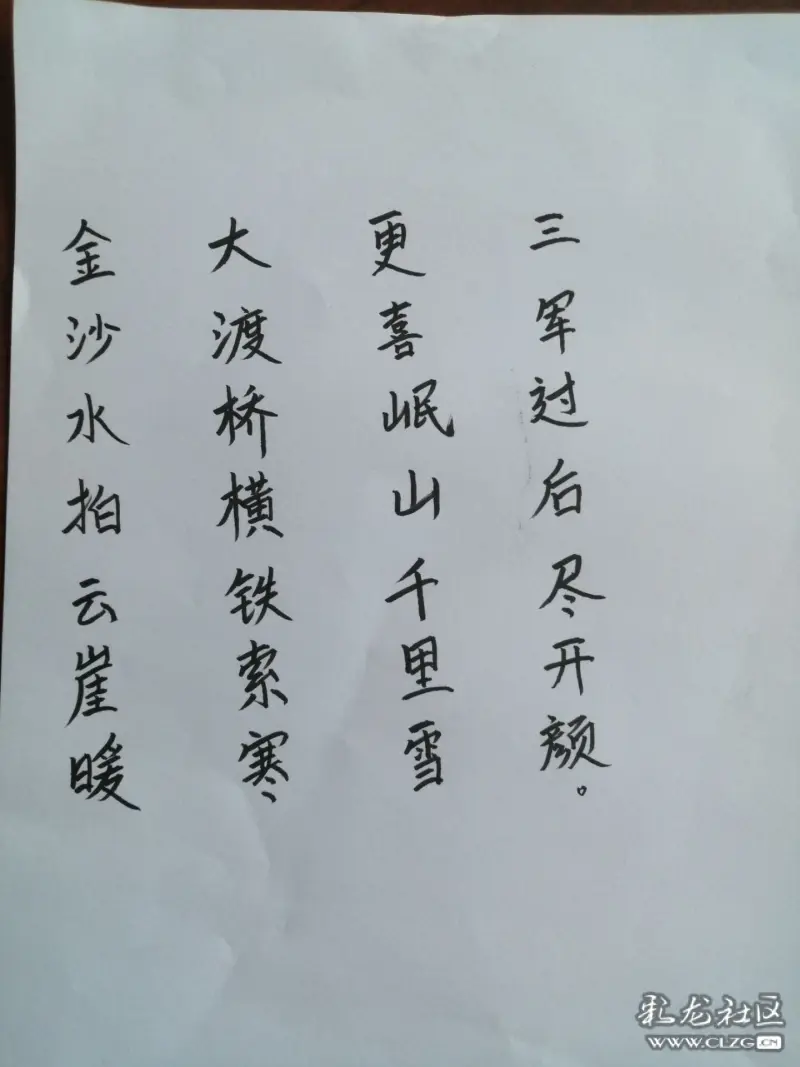 金沙水拍云崖暖
大渡桥横铁索寒
更喜岷山千里雪
三军过后尽开颜。
彩龙社区
WWW.CLZG.CN